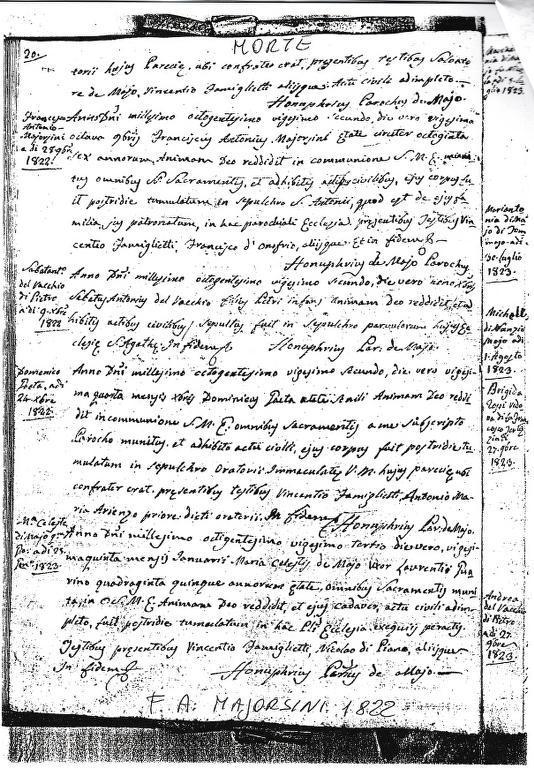 MORTE
20.
torii hujus Pareciæ, ubi confrater erat, presentibus testibus Salvato
re de Majo, Vincentio Famiglietti aliisque. Actu civili adimpleto.
Honuphrius Parochus de Majo.
Francesco
Antonio
Majorsini
a di 28 9bri
1822.
Anno Dñi millesimo octogentesimo vigesimo secundo, die vero vigesima
octava 9bris Franciscus Antonius Majorsini etate circiter octoginta
sex annorum, Animam Deo reddidit in communione S. M. E.
tus omnibus Ss. Sacramentis, et adhibitis actibus civilibus, ejus corpus fu
it postridie tumulatum in sepulchro S. Antonii, quod est de ejus fa
milia, jus patronatum, in hac parochiali Ecclesia presentibus Testibus Vin
centio Famiglietti Francisco d'Onofrio, aliisque. Et in fidem
Honuphrius de Majo Parochus
Sabatant.o
del Vacchio
di Pietro
a di 9 xbre
1822
Anno Dñi millesimo octogentesimo vigesimo secundo, die vero nona xbris
Sabatus Antonius del Vacchio filius Petri infans Animam Deo reddidit, et ad
hibitis actibus civilibus sepultus fuit in sepulchro parvulorum hujus Ec
clesiæ S. Agathæ. In fidem
Honuphrius Par. de Majo.
Domenico
Poeta, a di
24 xbre
1822.
Anno Dñi millesimo octogentesimo vigesimo secundo, die vero vigesi
ma quarta mensis xbris Dominicus Poeta Animam Deo reddi
dit in communione S. M. E. omnibus Sacramentis a me subscripto
Parocho munitus, et adhibito actu civili, ejus corpus fuit postridie tu
mulatum in sepulchro Oratorii Immaculatæ V. M. hujus pareciæ ubi
confrater erat, presentibus testibus Vincentio Famiglietti, Antonio Ma
ria Arienzo priore dicti oratorii. In fidem
Honuphrius Par. de Majo.
M.a Celeste
di Majo
a di 25
1823
Anno Dñi millesimo octigentesimo vigesimo tertio die vero, vigesi
ma quinta mensis Januarii Maria Celestis de Majo uxor Laurentii Gua
rino quadraginta quinque annorum etate, omnibus Sacramentis muni
ta, in S. M. E. Animam Deo reddidit, et ejus cadaver, actu civili adim
pleto, fuit postridie tumulatum in hac Ecclesia exequiis peractis,
Testibus presentibus Vincentio Famiglietti, Nicolao di Piano, aliisque
In fidem
Honuphrius Parhus de Majo
1823.
Marianto
nia di Ma
jo di Dom
a di
30 luglio
1823.
Michele
di Nunzio
Majo a di
1. Agosto
1823.
Brigida
Rossi vido
va di
27. 9bre
1823.
Andrea
del Vacchio
di Pietro
a di 27.
9bre
1823
F. A. MAJORSINI 1822